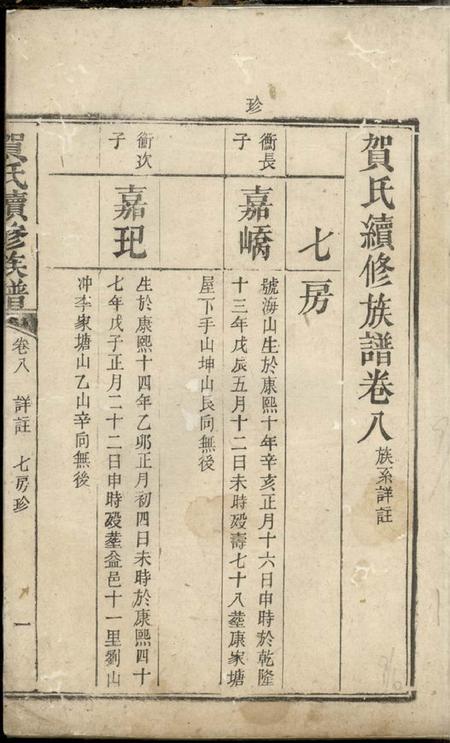 珍
賀氏續修族譜卷八 族系詳註
七房
衡長子
嘉嶠
號海山生於康熙十年辛亥正月十六日申時於乾隆
十三年戊辰五月十二日未時歿壽七十八塟康家塘
屋下手山坤山艮向無後
衡次子
嘉玘
生於康熙十四年乙卯正月初四日未時於康熙四十
七年戊子正月二十二日申時歿塟益邑十一里劉山
冲李家塘山乙山辛向無後
賀氏續修族譜 卷八 詳註 七房珍 一